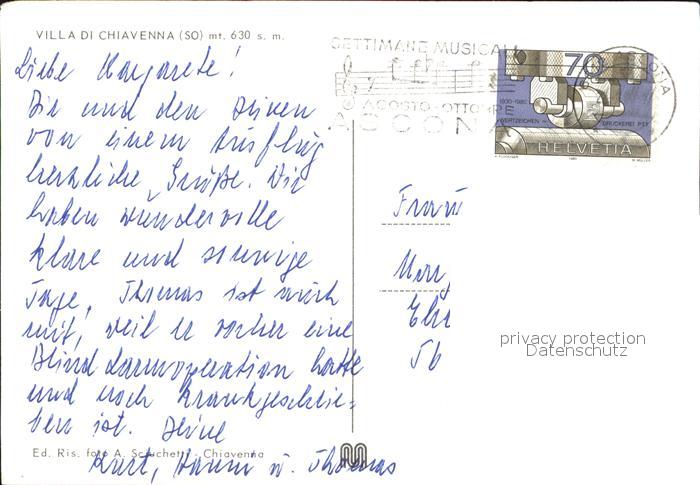 VILLA DI CHIAVENNA (SO) mt. 630 s. m.
Liebe Margarete!
Dir und den Deinen
von einem Ausflug
herzliche Grüße. Wir
haben wundervolle
klare und sonnige
Tage, Thomas ist auch
mit, weil er vorher eine
Blinddarmoperation hatte
und noch krankgeschrie=
ben ist. Deine
Kurt, u. Thomas
Ed. Ris. foto A. Chiavenna
SETTIMANE MUSICALI
AGOSTO-OTTOBRE
ASCONA
70
1930-1980
WERTZEICHEN DRUCKEREI PTT
HELVETIA
1980
Frau
Mar
privacy protection
Datenschutz